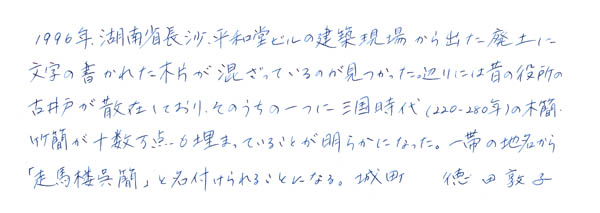 1996年、湖南省長沙、平和堂ビルの建築現場から出た廃土に
文字の書かれた木片が混ざっているのが見つかった。辺りには昔の役所の
古井戸が散在しており、そのうちの一つに三国時代(220-280年)の木簡・
竹簡が十数万点も埋まっていることが明らかになった。一帯の地名から
「走馬楼呉簡」と名付けられることになる。城町　徳田敦子